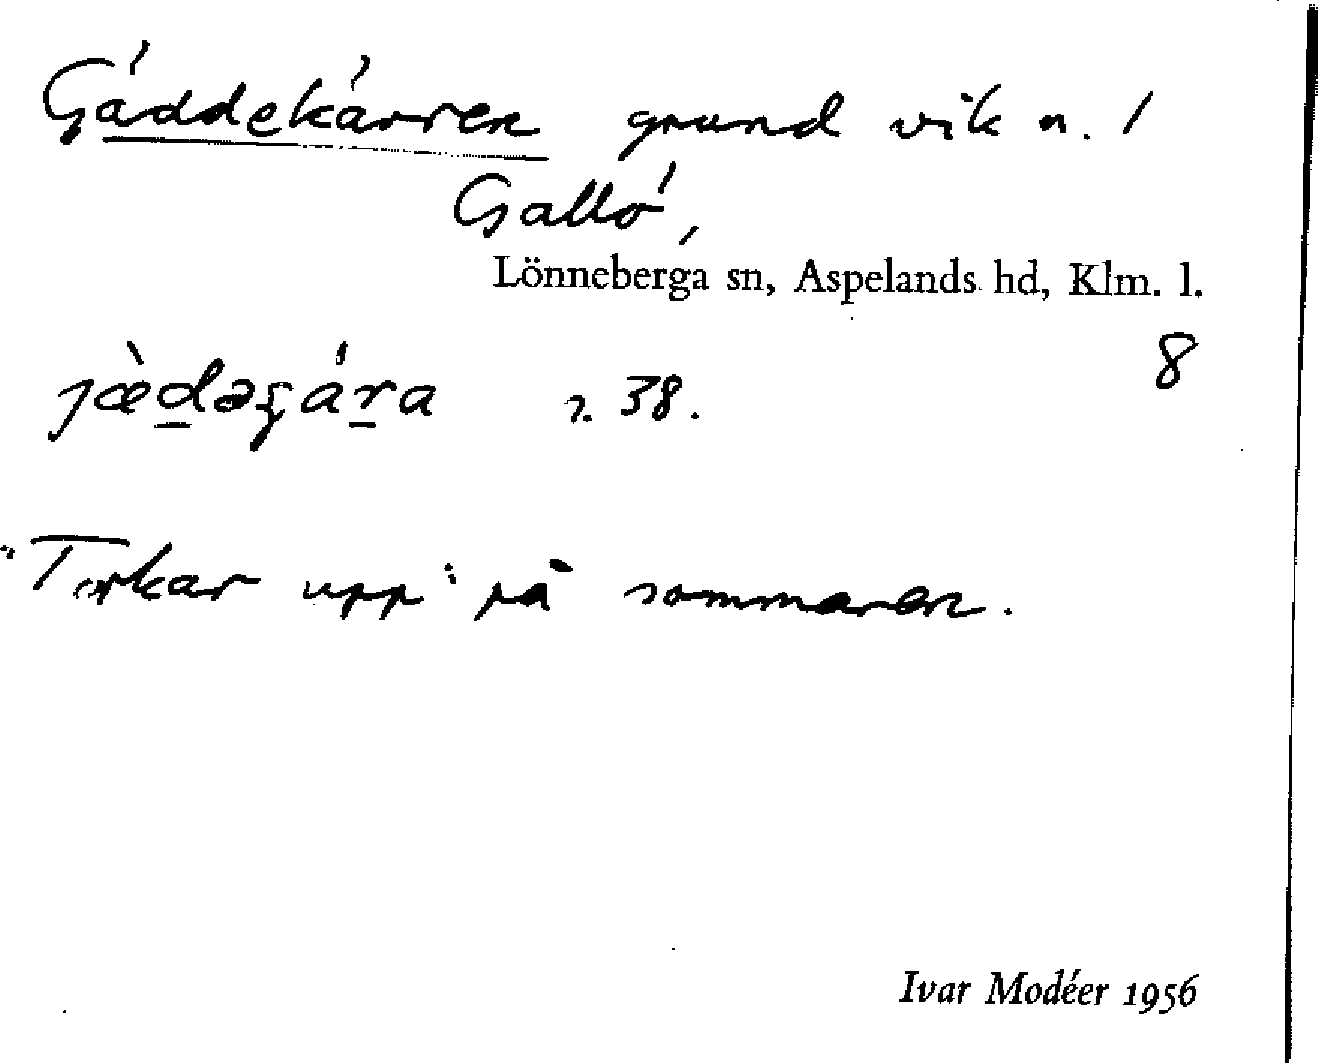 Gäddekärren grund vik n. /
Gallö,
Lönneberga sn, Aspelands hd, Klm. l.
8
jæ̀dəȿára r. 38.
"Torkar upp" på sommaren.
Ivar Modéer 1956